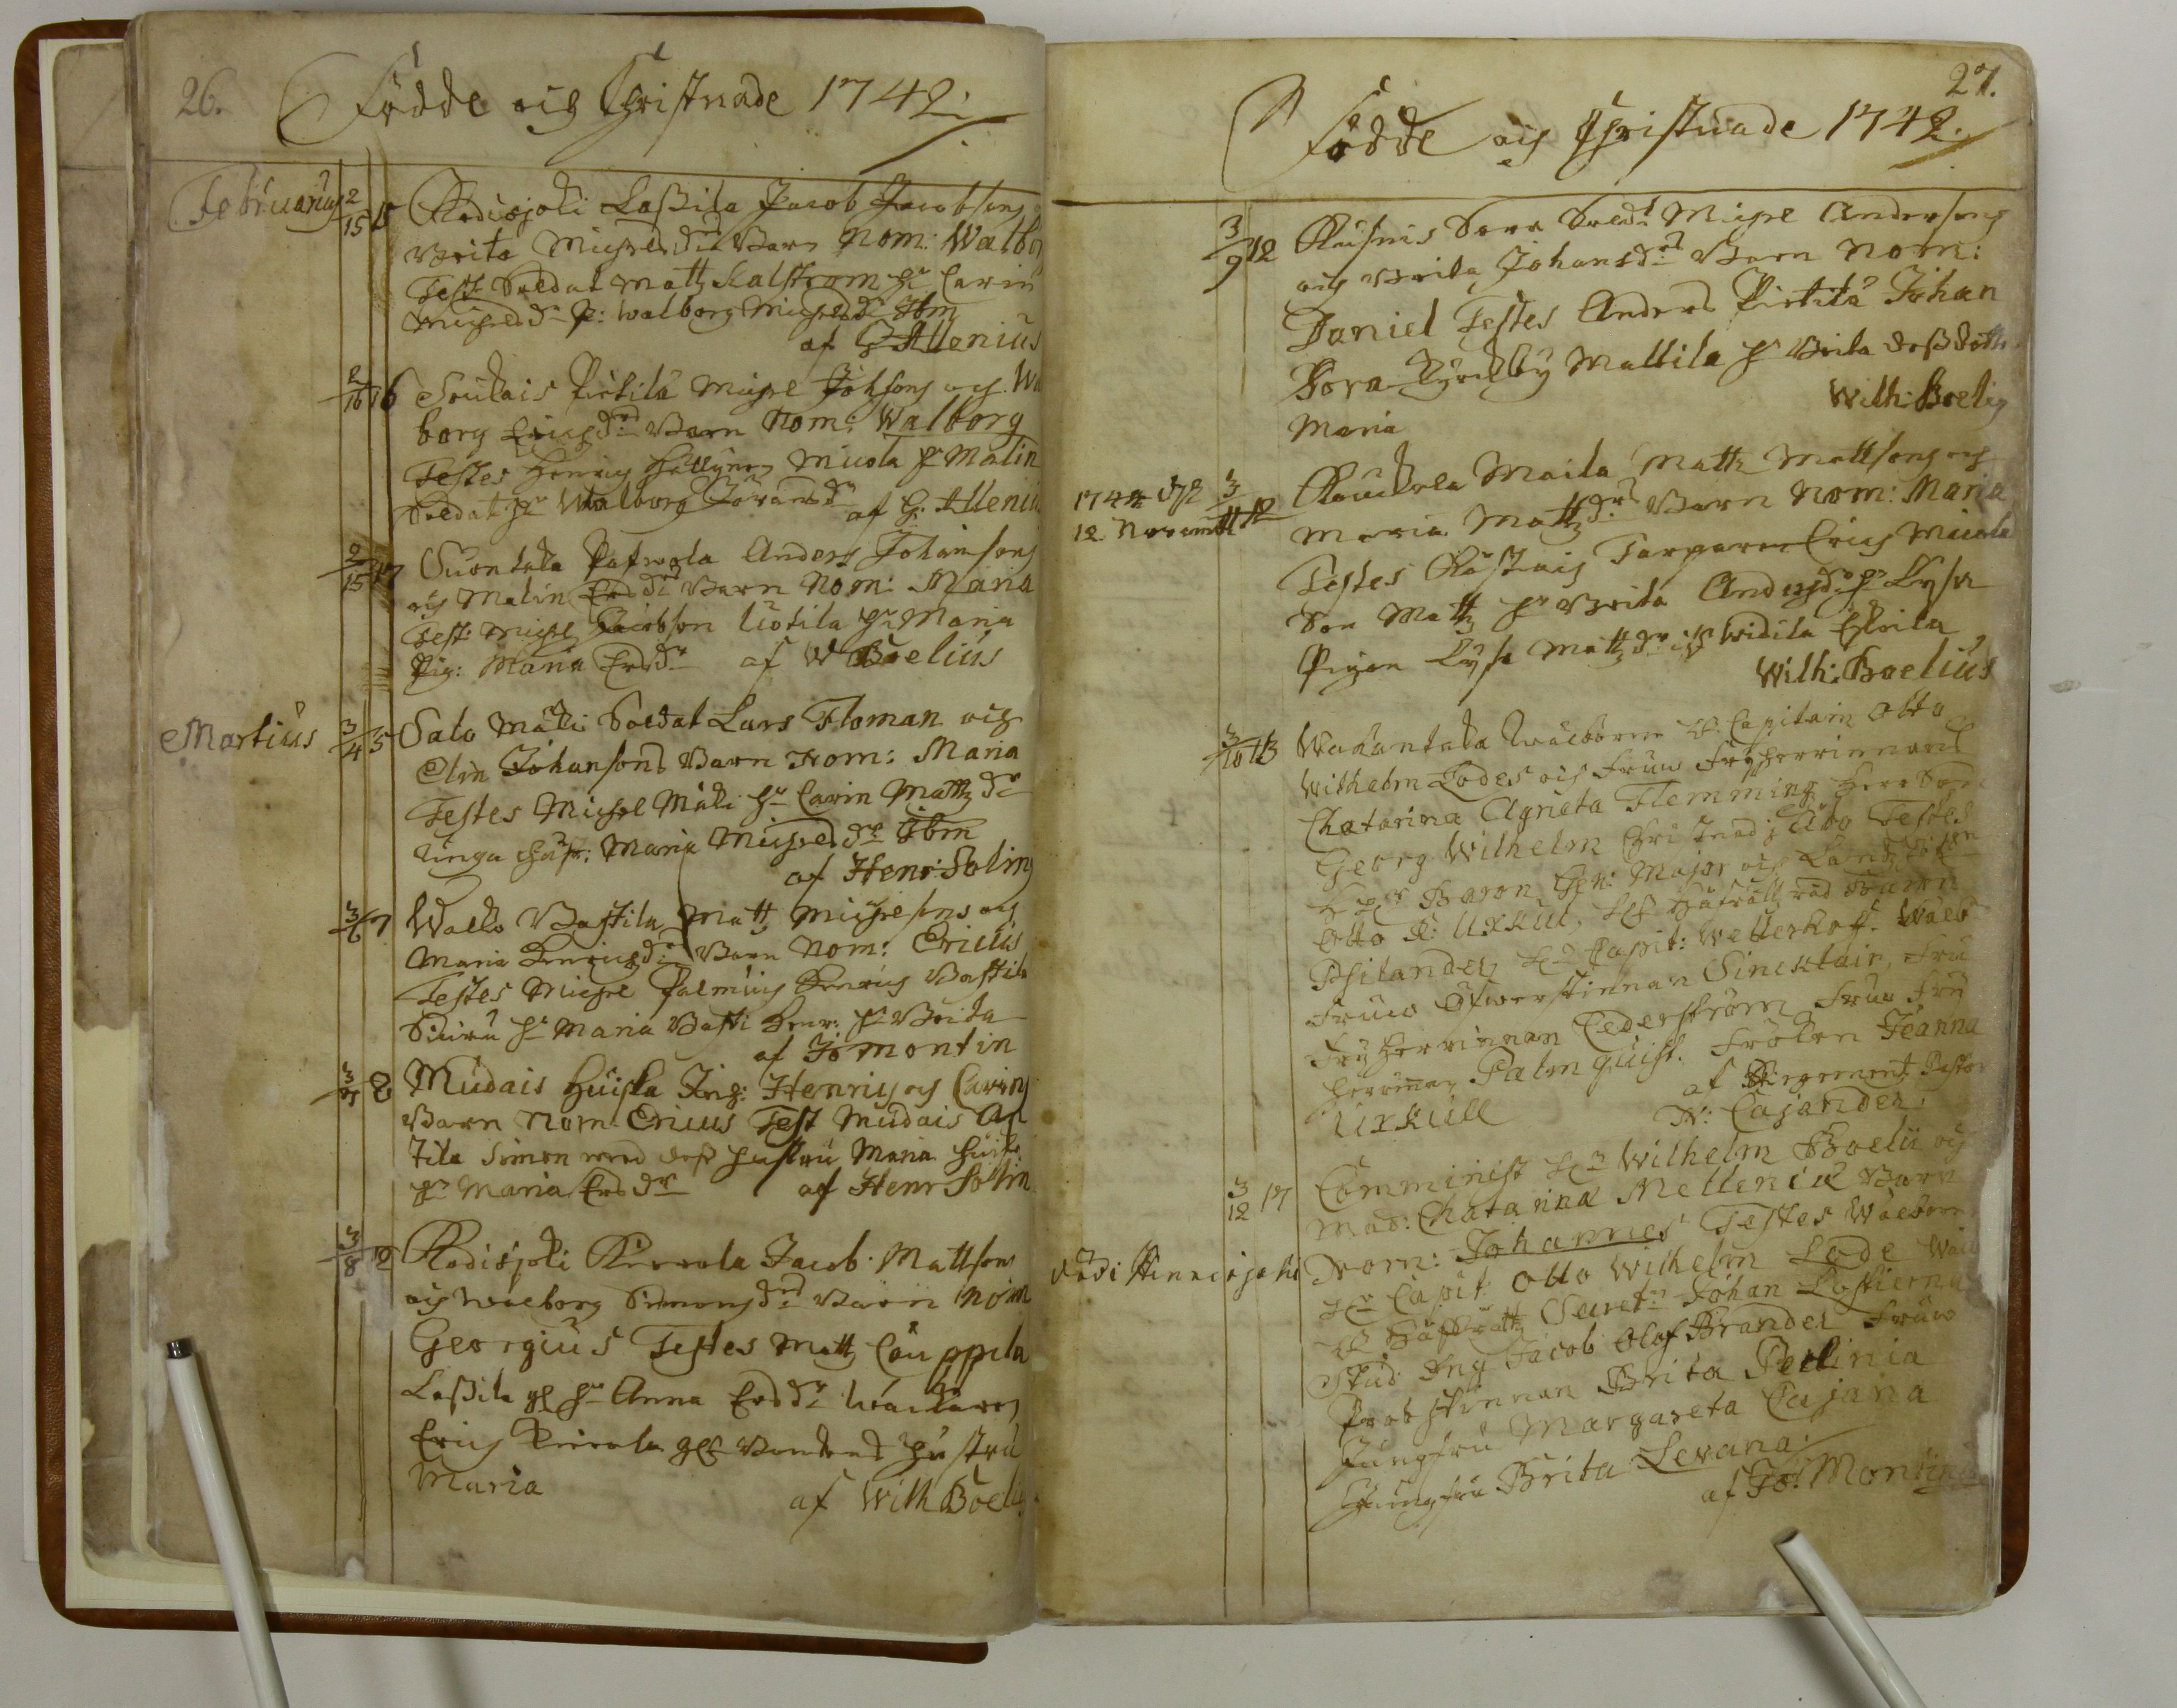 26.
Födde och Christnade 1742.
Februarius
2/15 15 Radisjoki Laßila Jacob Jacobsons
Brita Michelsdr Barn Nom: Walb
Test: Soldat Matts Kalstrom hu Carin
Michelsdr P: Walborg Michelsdr Ibm
af G Allenius
2/16 16 Soukais Pietilä Michel Johsons och Wa
borg Erichsdr Barn Nom: Walborg
Testes Henric Micola hu Malin
Soldat hu Walborg Jöransdr af G: Alleniu
2/15 17 Suontaka Pafwola Anders Johansons
och Malin Ersdr Barn Nom: Maria
Test: Michel Jacobson Uotila hu Maria
Pig: Maria Ersdr af W Boelius
Martius
3/4 5 Salo Mäki Soldat Lars Floman och
Elin Johansons Barn Nom: Maria
Testes Michel Mäki hu Carin Mattsdr
unga hust: Maria Michelsdr Ibm
af Henr: Solin
3/6 7 Wallo Bastila Matts Michelsons och
Maria Henricsdr Barn Nom: Ericus
Testes Michel Palmus Henric Bastila
hu Maria Basti Henr: hu Brita
af Jo Montin
3/5 8 Mudais Huista Ing: Henrics och Carins
Barn Nom: Ericus Test Mudais An
tila Simon med dess hustru Maria
hu Maria Ersdr af Henr Solin
3/8 12 Radisjoki Pirrola Jacob Mattsons
och Walborg Simonsdr Barn Nom
Georgius Testes Matts Cauppila
Laßila hu Anna Ersdr
Eric Pirrola Bondens hustru
Maria
af Wilh Boeli
27.
Födde och Christnade 1742.
3/9 12 Kusnis Sora Sold: Michel Andersons
och Brita Johansdr Barn Nom:
Daniel Testes Anders Pietilä Johan
Sora Kyrckby Mattila hu Brita deß dotte
Maria
Wilh: Boeliu
1742 d
12 Novemb
3/11 12 Rauckola Maila Matts Mattsons och
Maria Mattsdr Barn Nom: Maria
Testes Eric Micola
Son Matts hu Brita Andersdr hu Lysa
Pigan Lysa Mattsdr Widila Eskila
Wilh: Boelius
3/10 13 Wahantaka Wälborne H: Capitain Otto
Wilhelm Lodes och Fruns Fryherrinnans
Chatarina Agneta Flemming Herr Son
Georg Wilhelm Christnad i Åbo Testes
Hr Baron Gen: Major och Landshöfd
Otto R: Uxkul, Hr Håfrätts råd Baron
Psilander Hr Capit: Wetterhoff Wälb
Fruw Öfwerstinnan Sincktair, Fru
Fryherrinnan Cederström Fruw Fry
herrinnan Palmquist. Fröken Jeanna
Uxkull
af Regement Pastor
N: Cajander.
3/12 17 Comminist Hr Wilhelm Boelii och
Mad: Chatarina Melleniæ Barn
Nom: Johannes Testes Wälborn
Hr Capit: Otto Wilhelm Lode Wälb
Hr Håfrätts Secret: Johan
Stud Ing Jacob Olof Brander Fruw
Probstinnan Brita Paelinia
Jungfru Margareta Cajana
Jungfru Brita Levana.
af Jo: Montin